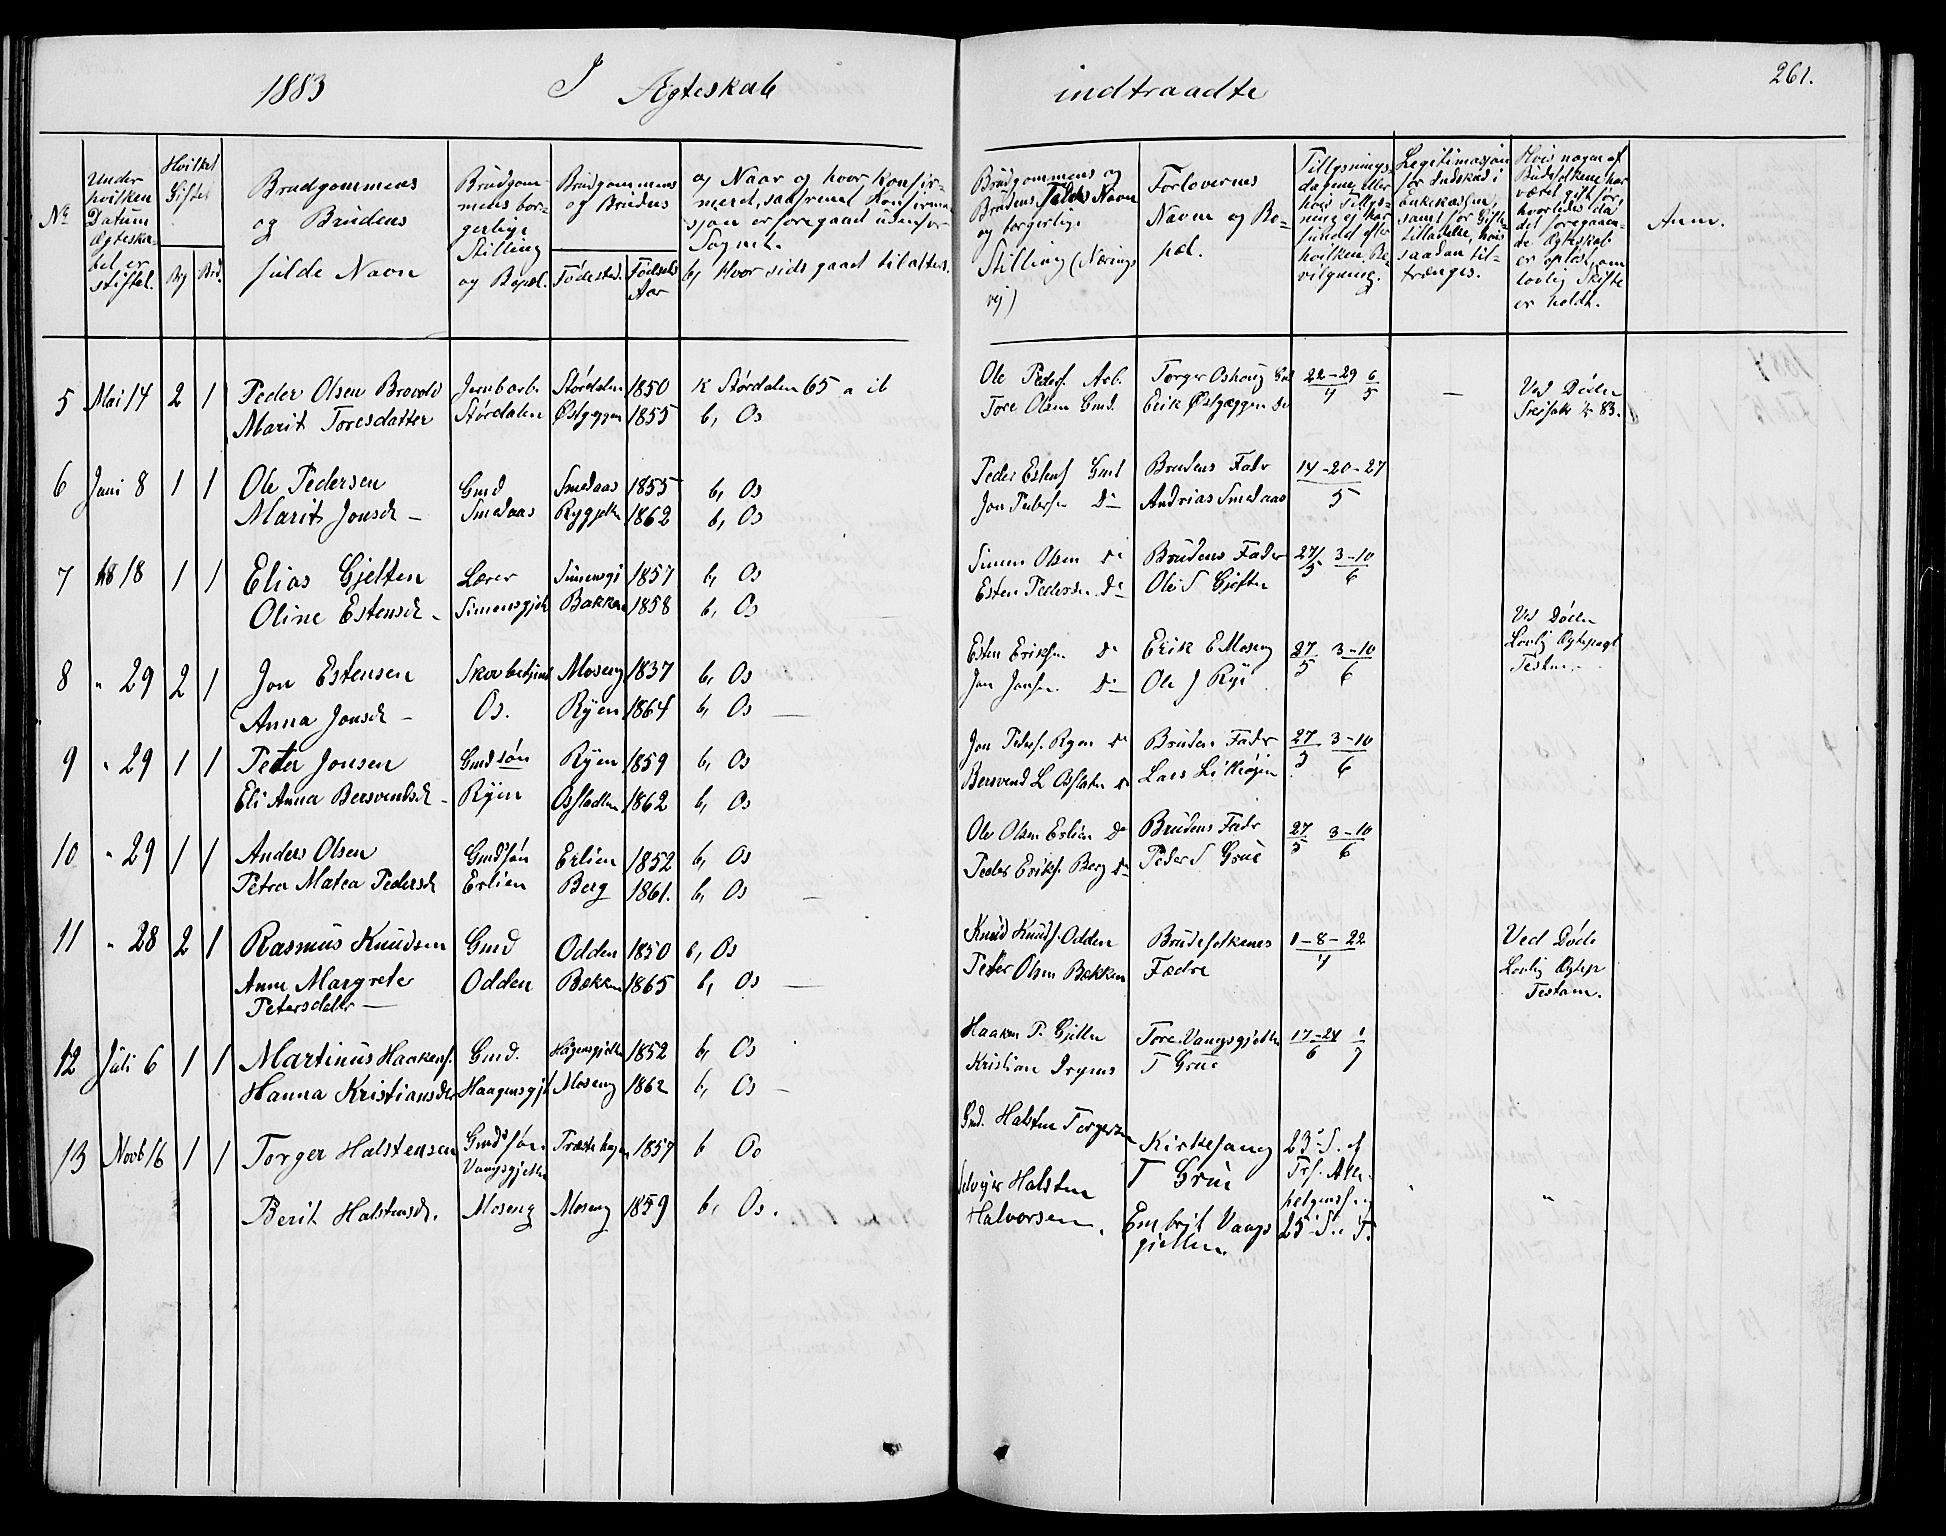 1883 I Ægteskab indtraadte 261.
No
Under hvilken Datum Ægteskabet er stiftet.
Hvilket Giftet
By Br.
Brudgommens og Brudens fulde Navn
Brudgommens borgerlige Stilling og Bopæl.
Brudgommens og Brudens
Fødested.
Fødsels Aar
a, Naar og hvor Konfirmeret, saafremt Konfirmasjon er foregaaet udenfor Sognet.
b, Hvor sidst gaaet til alters.
Brudgommens og Brudens Faders Navn og borgerlige Stilling (Næringsvej)
Forlovernes Navne og Bopæl.
Tillysningsdagene, eller hvis Tillysning ej har fundet efter hvilken Bevilgning.
Legitimasjon for Indskud i Enkekassen, samt for Giftetilladelse, hvis saadan tiltrænges.
Hvis nogen af Brudefolkene har været gift før, hvorledes da det foregaaende Ægteskab er opløst, om lovlig Skifte er holdt.
Anm.
5 Mai 14 2 1 Peder Olsen Brovold Jernbarb. Stördalen 1850 K Stördalen 65 a ib Ole Peders. Arb. Torger Oshoug 22-29/4 6/5 — Ved Døden
Marit Toresdatter Stördalen Østgeggen 1855 b, Os Tore Olsen Gmd. Erik Østgæggen 83.
6 Juni 8 1 1 Ole Pedersen Gmd Smedaas 1855 b, Os Peder Estens. Gmd Brudens Fader 14-20-27/5
Marit Jonsd — Smedaas Rygjelten 1862 b, Os Jon Peders. Do Andrias Smedaas
7 18 1 1 Elias Gjelten Lærer Simensgj 1857 b, Os Simen Olsen Do Brudens Fader 27/5 3-10/6
Oline Estensd. Simensgjelt Bakken 1858 b, Os Esten Pedersen Do Ole S Gjelten
8 " 29 2 1 Jon Estensen Skovbetjent Moseng 1837 b, Os Esten Eriksen Do Erik E Moseng 27/5 3-10/6 Ved Døden Lovlig Ægtepagt Testam.
Anna Jonsd — Os. Ryen 1864 b, Os — Jon Jonsen Do Ole J Rye
9 " 29 1 1 Peter Jonsen Gmdsøn Ryen 1859 b, Os Jon Peders. Ryen Do Brudens Fader 27/5 3-10/6
Eli Anna Bersvendsd. Ryen Osflodten 1862 b, Os Bersvend L Osflaten Do Lars Lillhøjen
10 " 29 1 1 Anders Olsen Gmdsøn Erlien 1852 b, Os Ole Olsen Erlien Do Brudens Fader 27/5 3-10/6
Petra Matea Pedersd Erlien Berg 1861. b, Os — Peder Eriks. Berg Do Peder T Grue
11 " 28 2 1 Rasmus Knudsen Gmd Odden 1850 b, Os Knud Knuds. Odden Brudefolkenes 1-8-22/4 Ved Døde
Anne Margrete Petersdatr — Odden Bækken 1865 b, Os — Peter Olsen Bækken Fædre Lovlig Ægtep Testam.
12 Juli 6 1 1 Martinus Haakens. Gmd. Hagensgjelten 1852 b, Os Haaken P. Gjelten Tore Vangsgjelten 17-24/6 1/7
Hanna Kristiansdr Haagensgj Moseng 1862 b, Os — Kristian Irgens T Grue
13 Novb 16 1 1 Torger Halstensen Gmdssøn. Vangsgjelten Træstehagen 1857 b Os Gmd. Halsten Torgersen Kirkesang T Grue 23 S. ef Trf. Allehelgensf. og
Berit Halstensdr. Moseng Moseng 1859 b, Os. Selvejer Halsten Halvorsen. Embrit Vangsgjelten 25 S. e T. "